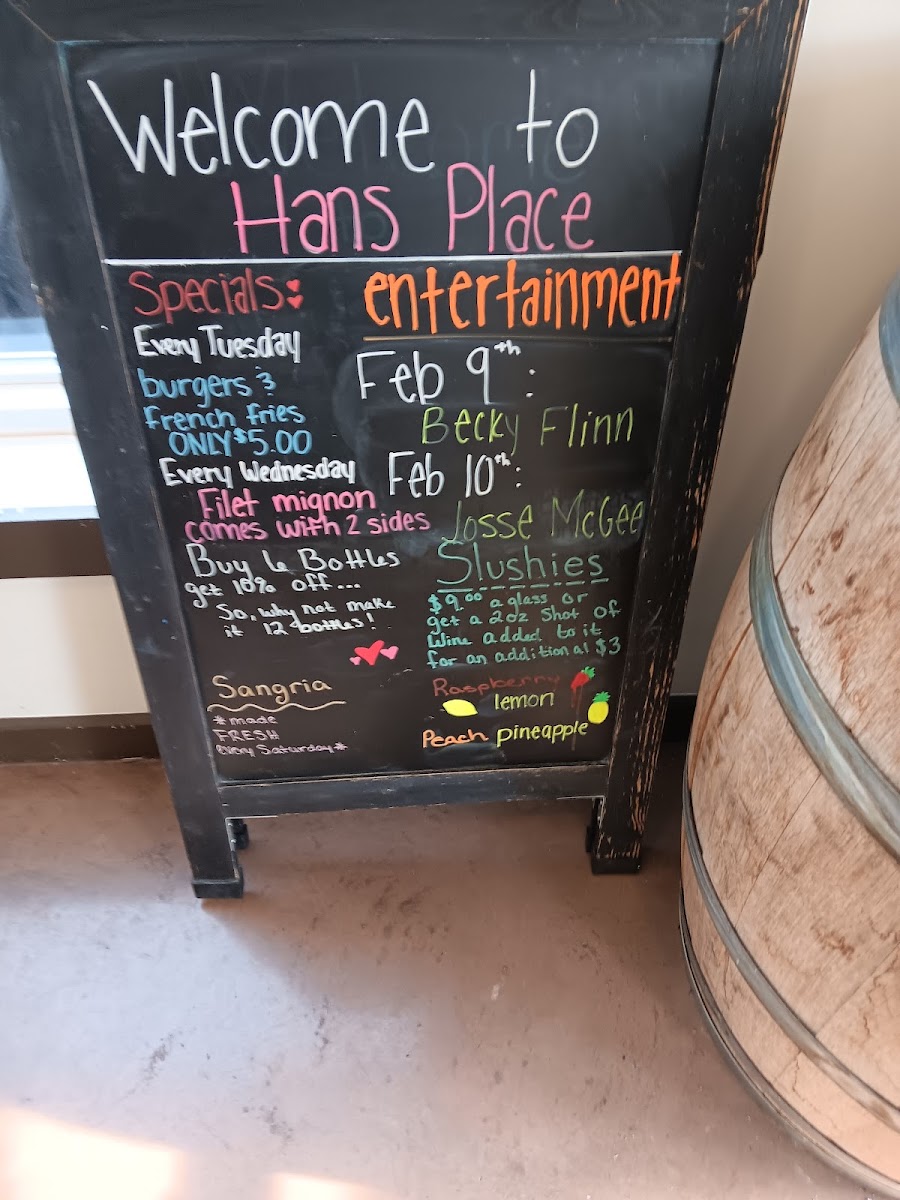 Welcome to
Hans Place
Specials:
Every Tuesday
burgers &
French fries
ONLY $5.00
Every Wednesday
Filet mignon
comes with 2 sides
Buy 6 Bottles
get 10% off...
So, why not make
it 12 bottles!
Sangria
*made
FRESH
every Saturday*
entertainment
Feb 9th:
Becky Flinn
Feb 10th:
Josse McGee
Slushies
$9.00 a glass or
get a 2oz Shot of
Wine added to it
for an additional $3
Raspberry
lemon
Peach pineapple